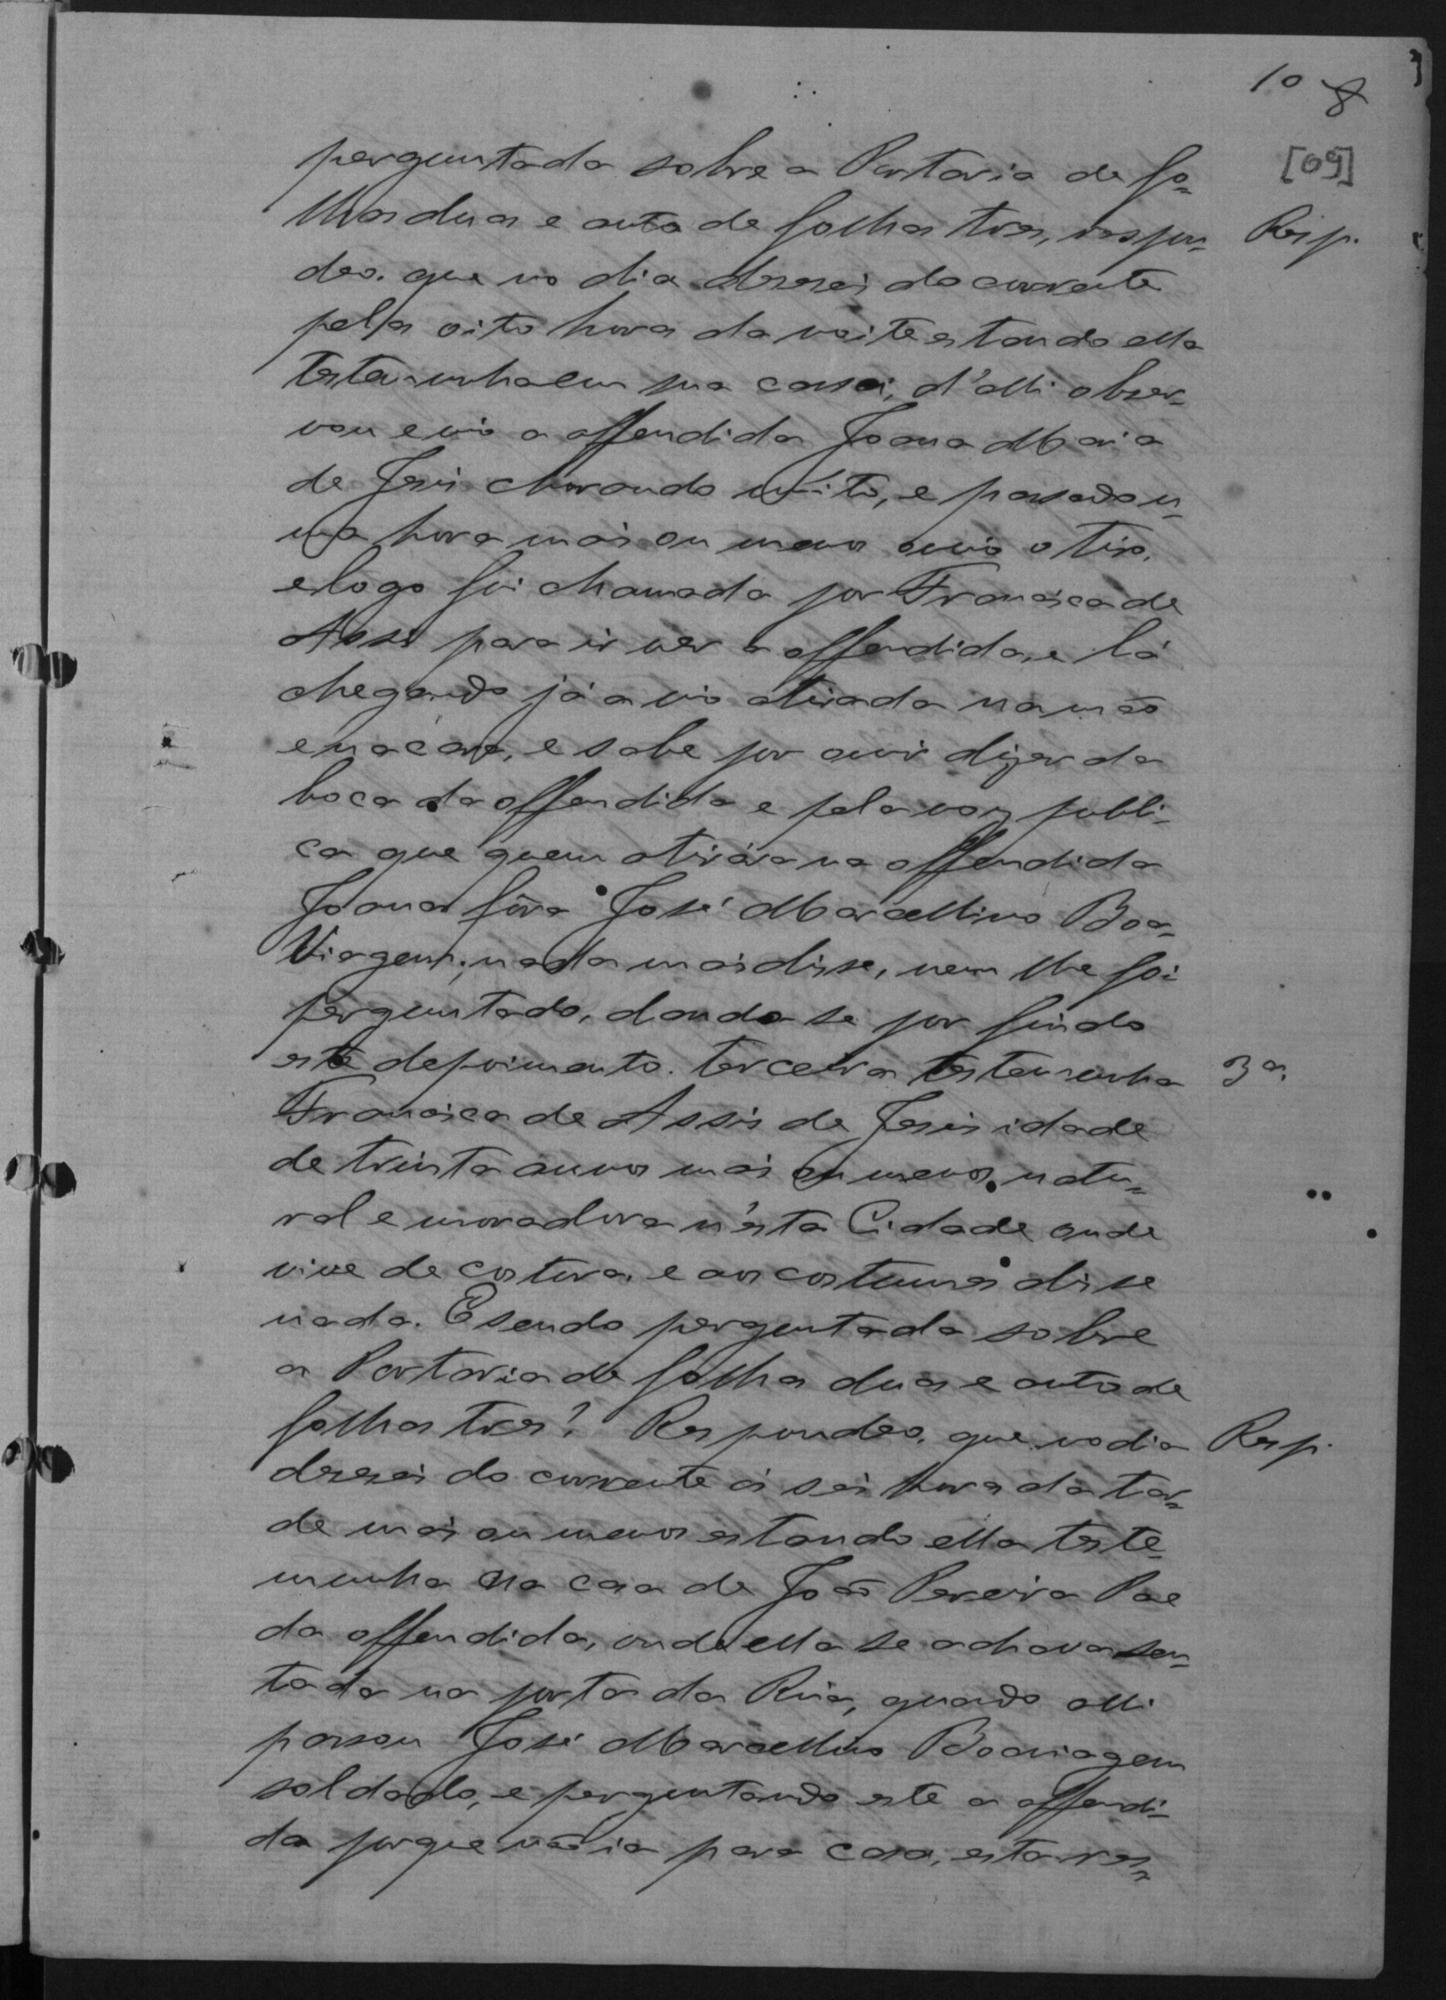 10 8
[09]
perguntada sobre a Portaria de fo-
lhas duas e auto de folhas tres, respon- Resp.
deo. que no dia deseseis do corrente
pelas oito horas da noite estando ella
testemunha em sua casa, d'alli obser-
vou e vio a offendida Joana Maria
de Jesus chorando muito, e passado u-
ma hora mais ou menos ouvio o tiro,
e logo foi chamada por Francisca de
Assis para ir ver a offendida, e lá
chegando já a vio atirada na mão
e na cara, e sabe por ouvir dizer da
boca da offendida e pela voz publi-
ca que quem atirára na offendida
Joana fôra José Marcellino Boa-
Viagem; nada mais disse, nem lhe foi
perguntado, dando se por findo
este depoimento. terceira testemunha 3a.
Francisca de Assis de Jesus idade
de trinta annos mais ou menos, natu-
ral e moradora n'esta Cidade onde
vive de costura, e aos costumes disse
nada. E sendo perguntada sobre
a Portaria de folhas duas e auto de
folhas tres? Respondeo, que no dia Resp.
deseseis do corrente ás seis horas da tar-
de mais ou menos estando ella teste-
munha na casa de João Pereira Pae
da offendida, onde ella se achava sen-
tada na porta da Rua, quando alli
passou José Marcellino Boaviagem
soldado, e perguntando este a offendi-
da porque não ia para casa, esta res-